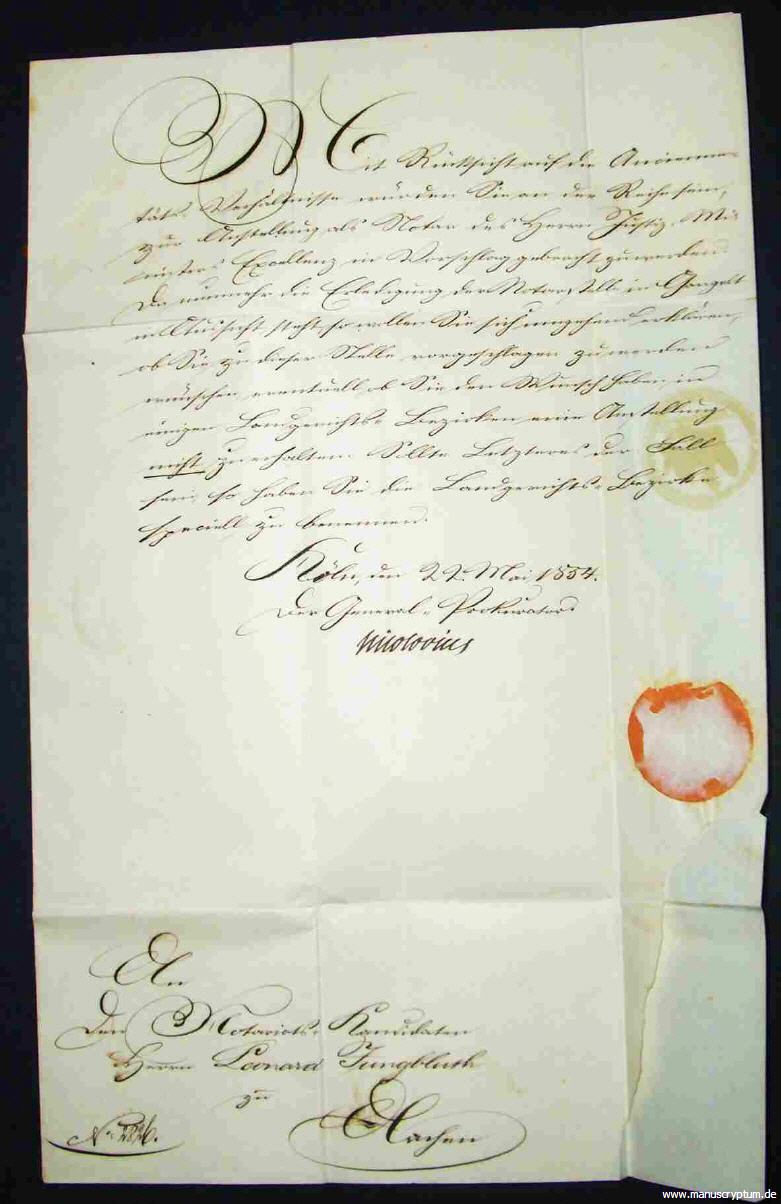 Mit Rücksicht auf die Ancienne-
täts-Verhältnisse würden Sie an der Reihe sein,
zur Anstellung als Notar des Herrn Justiz-Mi-
nisters Excellenz in Vorschlag gebracht zu werden.
Da nunmehr die Erledigung der Notarstelle in Gangelt
in Aussicht steht, so wollen Sie sich umgehend erklären,
ob Sie zu dieser Stelle vorgeschlagen zu werden
wünschen eventuell, ob Sie den Wunsch haben, in
einigen Landgerichts-Bezirken eine Anstellung
nicht zu erhalten. Sollte Letzteres der Fall
sein, so haben Sie die Landgerichts-Bezirke
speciell zu benennen.
Köln, den 22. Mai 1854.
Der General-Prokurator
Nicolovius
An
Den Notariats-Kandidaten
Herrn Leonard Jungbluth
zu
Aachen
No. 2826.
www.manuscryptum.de